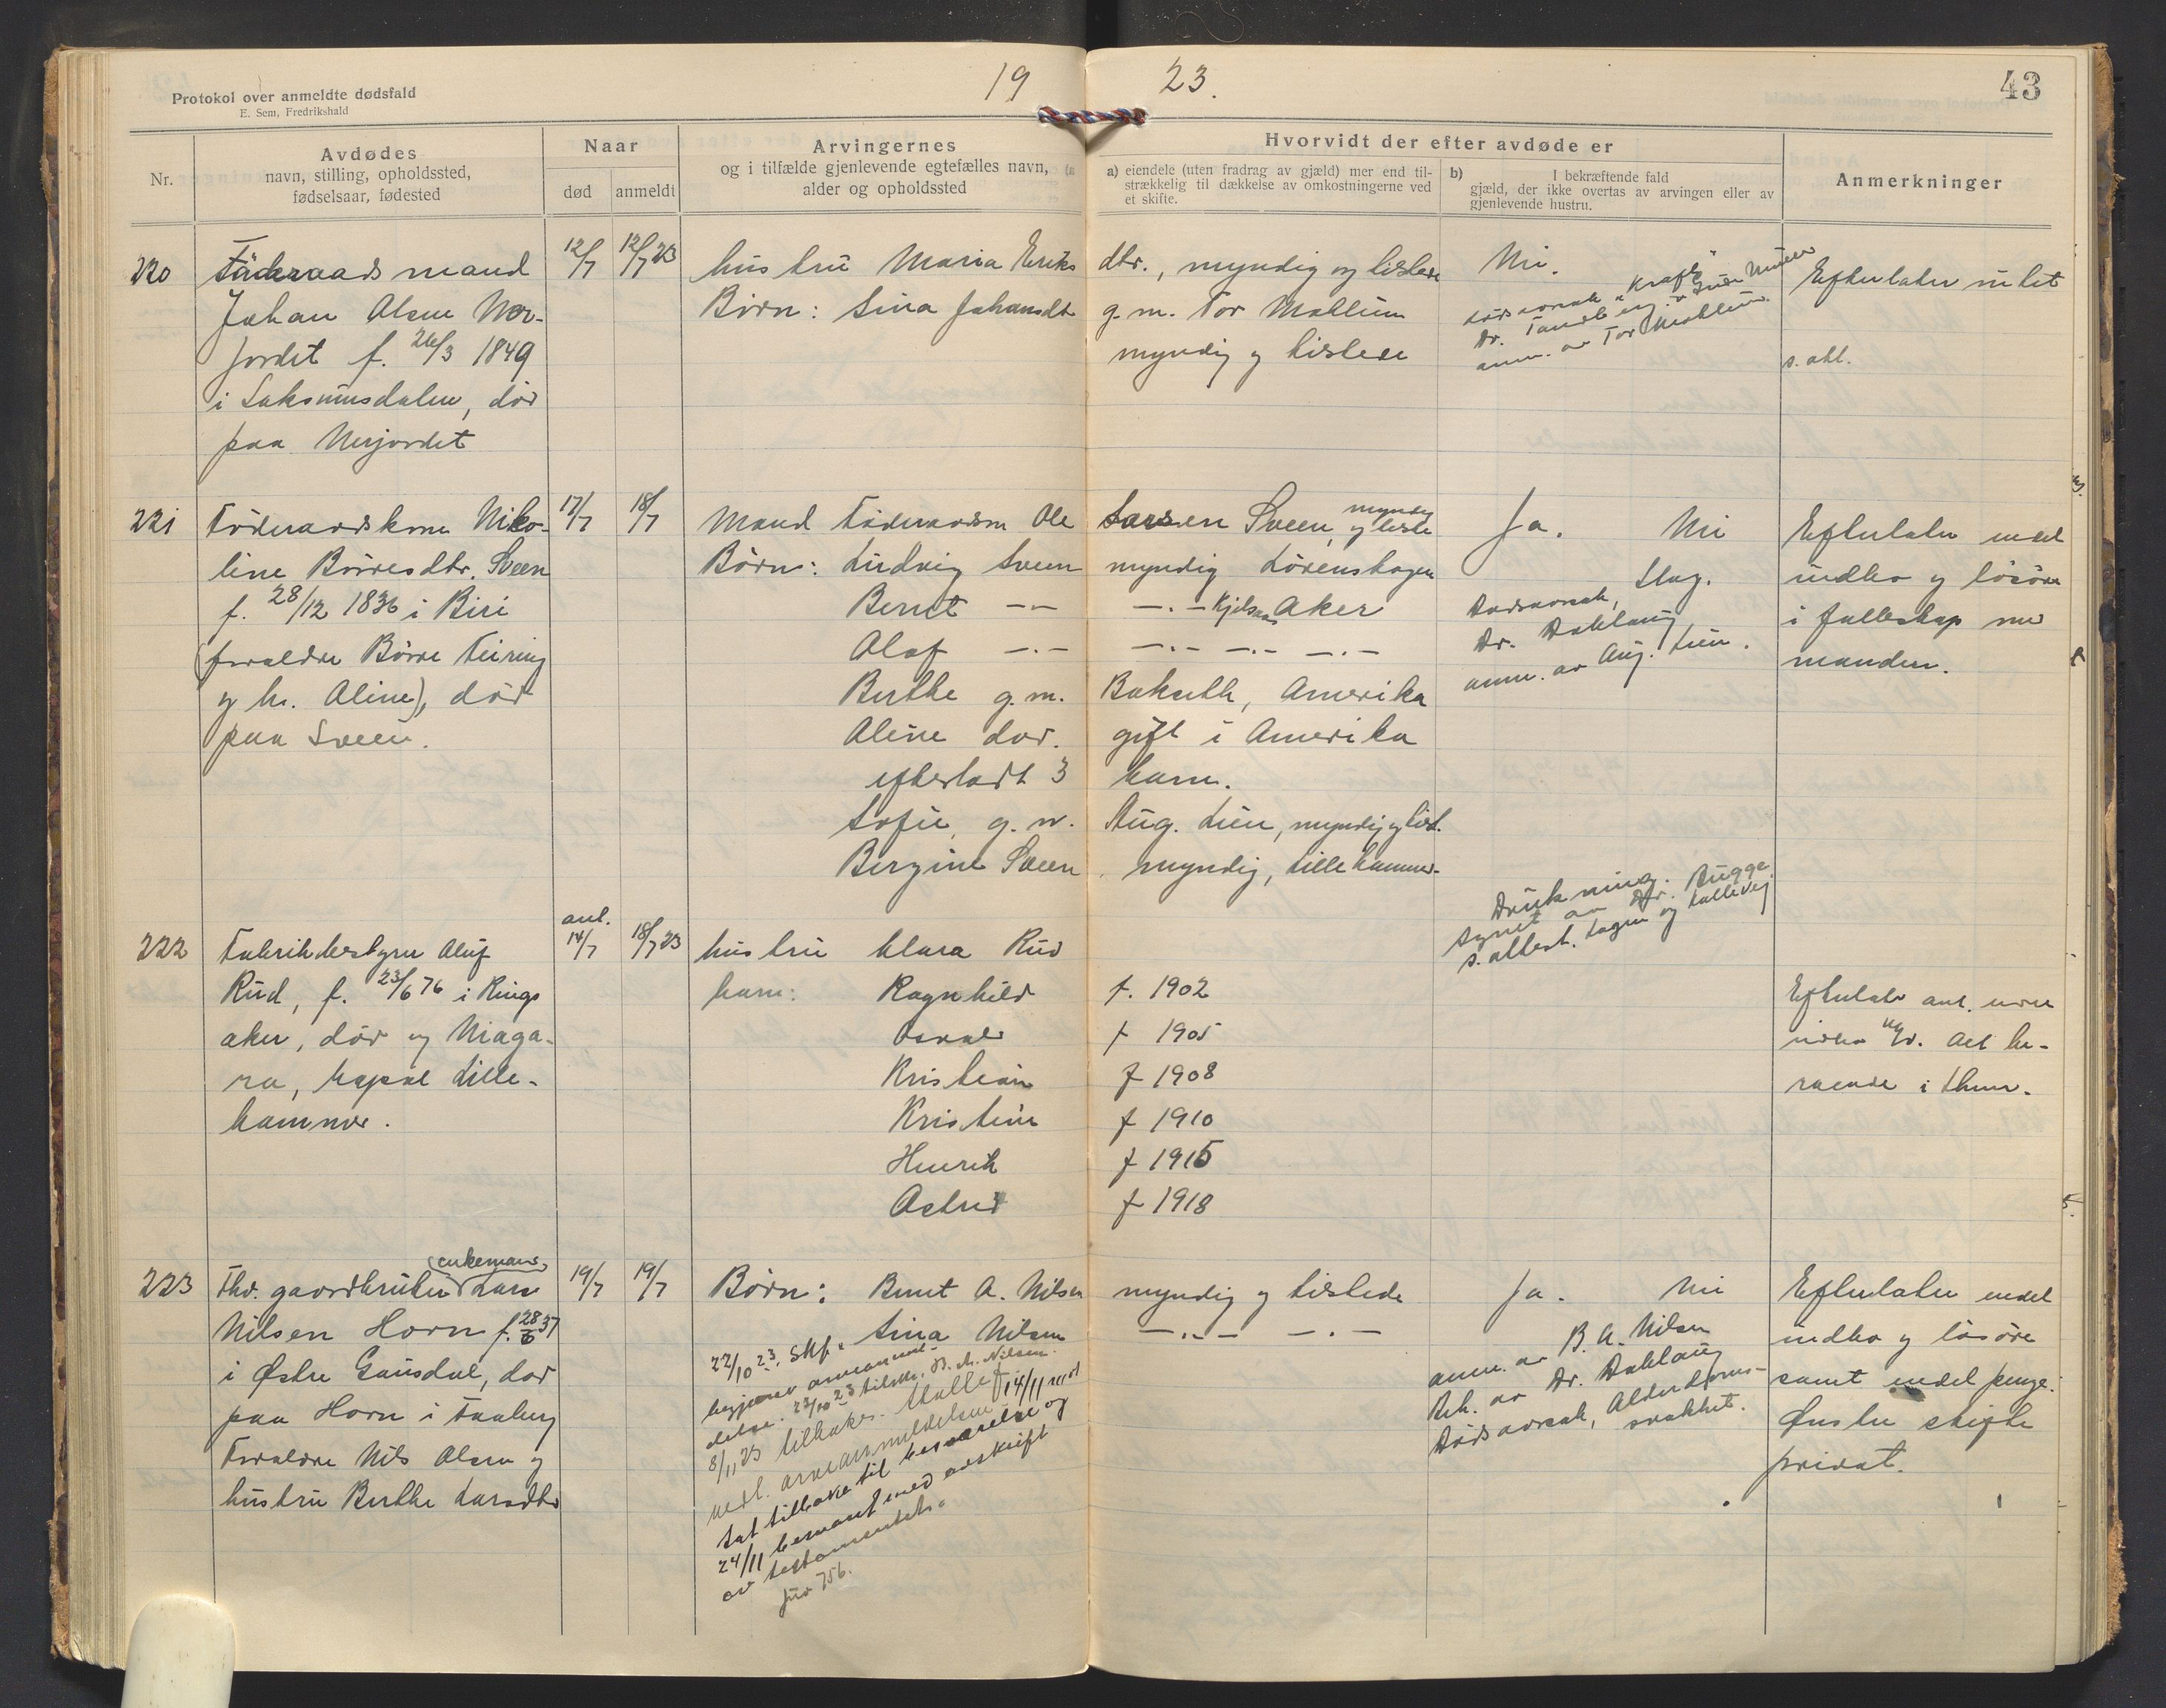 Protokol over anmeldte dødsfald
E. Sem, Fredrikshald
19 23.
43
Nr.
Avdødes
navn, stilling, opholdssted,
fødselsaar, fødested
Naar
død
anmeldt
Arvingernes
og i tilfælde gjenlevende egtefælles navn,
alder og opholdssted
Hvorvidt der efter avdøde er
a) eiendele (uten fradrag av gjæld) mer end til-
strækkelig til dækkelse av omkostningerne ved
et skifte.
b) I bekræftende fald
gjæld, der ikke overtas av arvingen eller av
gjenlevende hustru.
Anmerkninger
220
Føderaadsmand
Johan Olsen Ner-
jordet f. 26/3 1849
i Saksumsdalen, død
paa Nerjordet
12/7
12/7 23
hustru Maria Eriksdtr., myndig og tilstede
Børn: Sina Johansdtr g. m. Tor Moklum
myndig og tilstede
Nei.
Dødsaarsak "Kræft"
Dr. Tandberg
anm. av Tor Moklum
Efterlater intet
s. att.
221
Føderaadskone Niko-
line Børresdtr. Sveen
f. 28/12 1836 i Biri
(forældre Børre Feiring
og h. Aline), død
paa Sveen.
17/7
18/7
Mand Føderaadsm Ole Larsen Sveen, myndig og tilstede
Børn: Ludvig Sveen myndig Lørenskogen
Bernt -"- -"- Kjelsaas Aker
Olaf -"- -"- -"- -"-
Berthe g. m. Bakseth, Amerika
Aline død. gift i Amerika
efterladt 3 barn.
Sofie, g. m. Aug. Lien, myndig og tilst.
Bergine Sveen myndig, Lillehammer.
Ja. Nei
Dødsaarsak, Slag.
Dr. Dahlaug
anm. av Aug. Lien.
Efterlater endel
indbo og løsøre
i fællesskap med
manden.
222
Fabrikbestyrer Oluf
Rud, f. 23/6 76 i Rings
aker, død og Niaga-
ra, bopæl Lille-
hammer.
ant.
14/7
18/7 23
hustru Klara Rud
barn: Ragnhild f. 1902
Osvald f 1905
Kristian f 1908
Kristine f 1910
Henrik f 1915
Astrid f 1918
Drukning.
Synet av Dr. Bugge
s. attest. Lagen og Kallevig
Efterlater ant.
indbo
i
223
Fhv. gaardbruker (enkemand) Lars
Nilsen Horn f. 28/6 37
i Østre Gausdal, død
paa Horn i Faaberg
Forældre Nils Olsen og
hustru Berthe Larsdtr
19/7
19/7
Børn: Bernt A. Nilsen myndig og tilstede
Sina Nilsen -"- -"-
22/10 23. Skf.
begjæret arveanmel-
delse. 23/10 23 tilskr. B. A. Nilsen.
8/11 23 tilbakes.
vedl. arveanmeldelsen 14/11 retur
sat tilbake til besvarelse og
24/11 besvart med avskrift
av testamentet.
jnr 756.
Ja. Nei
anm. av B. A. Nilsen
Beh. av Dr. Dahlaug
Dødsaarsak, Alderdoms-
svakhet.
Efterlater endel
indbo og løsøre
samt endel penge.
Ønsker skifte
privat.